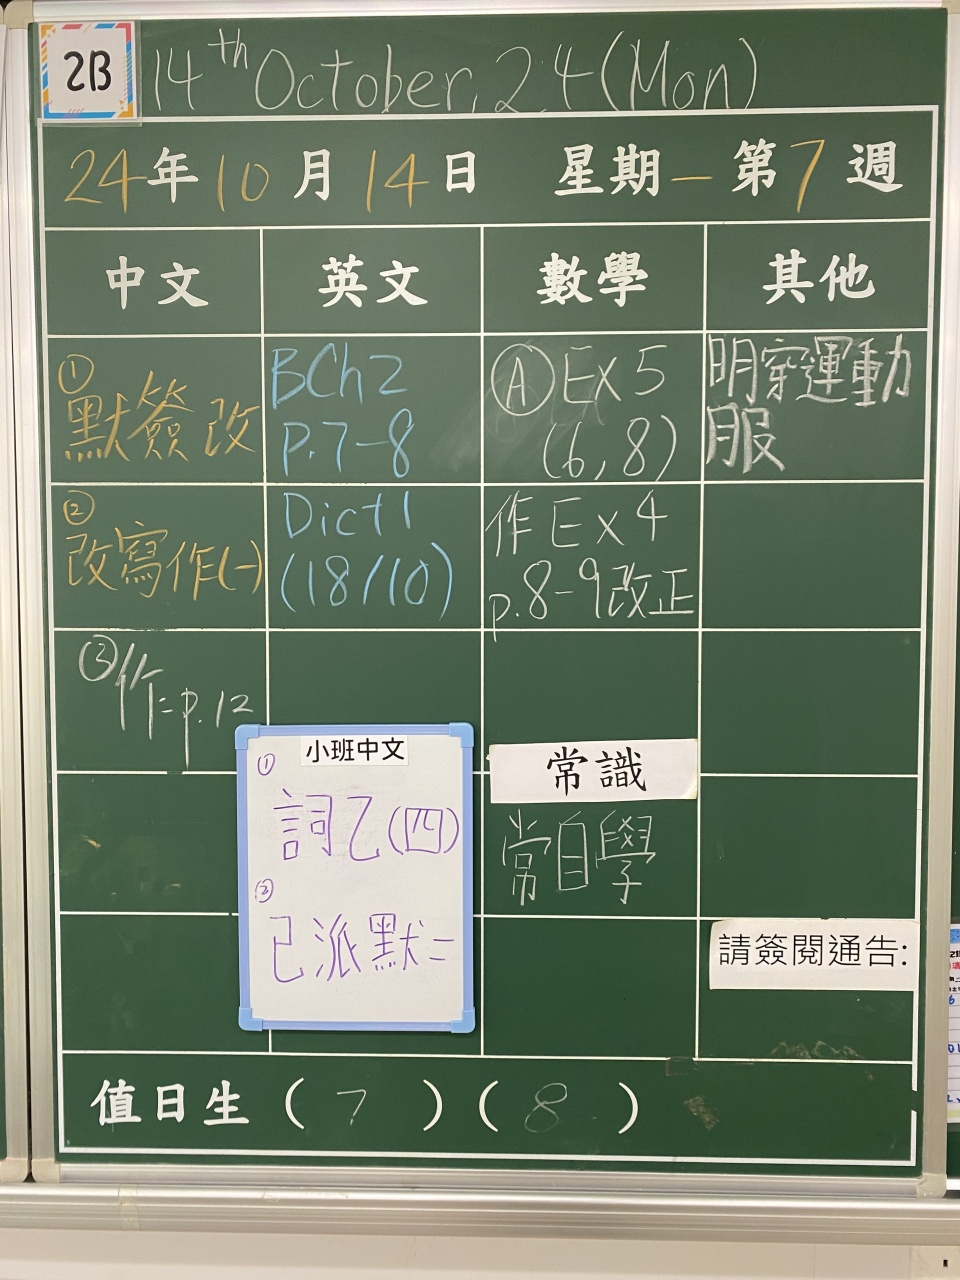 2B
14th October, 24 (Mon)
24年10月14日 星期一 第7週
中文
英文
數學
其他
①
默簽改
BCh2
P.7-8
Ⓐ Ex 5
(6,8)
明穿運動
服
②
改寫作(一)
Dict 1
(18/10)
作 Ex 4
p.8-9改正
③
作=p.12
小班中文
①
詞乙(四)
②
已派默二
常識
常自學
請簽閱通告:
值日生 (7) (8)